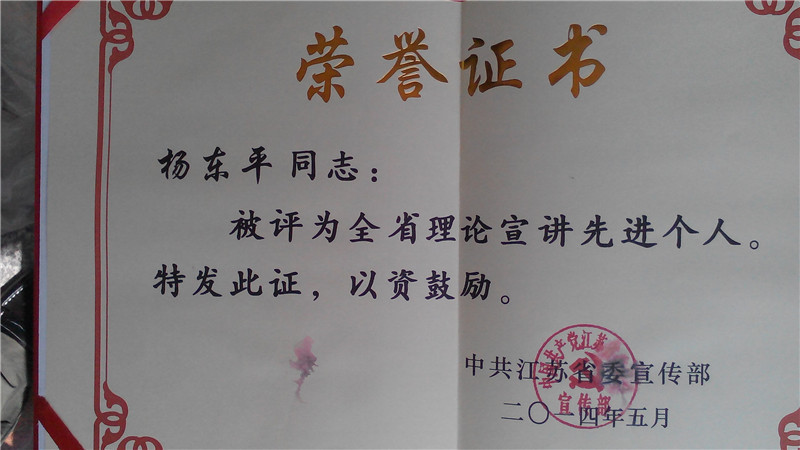 荣誉证书
杨东平同志：
被评为全省理论宣讲先进个人。
特发此证，以资鼓励。
中共江苏省委宣传部
二〇一四年五月
中国共产党江苏
宣传部